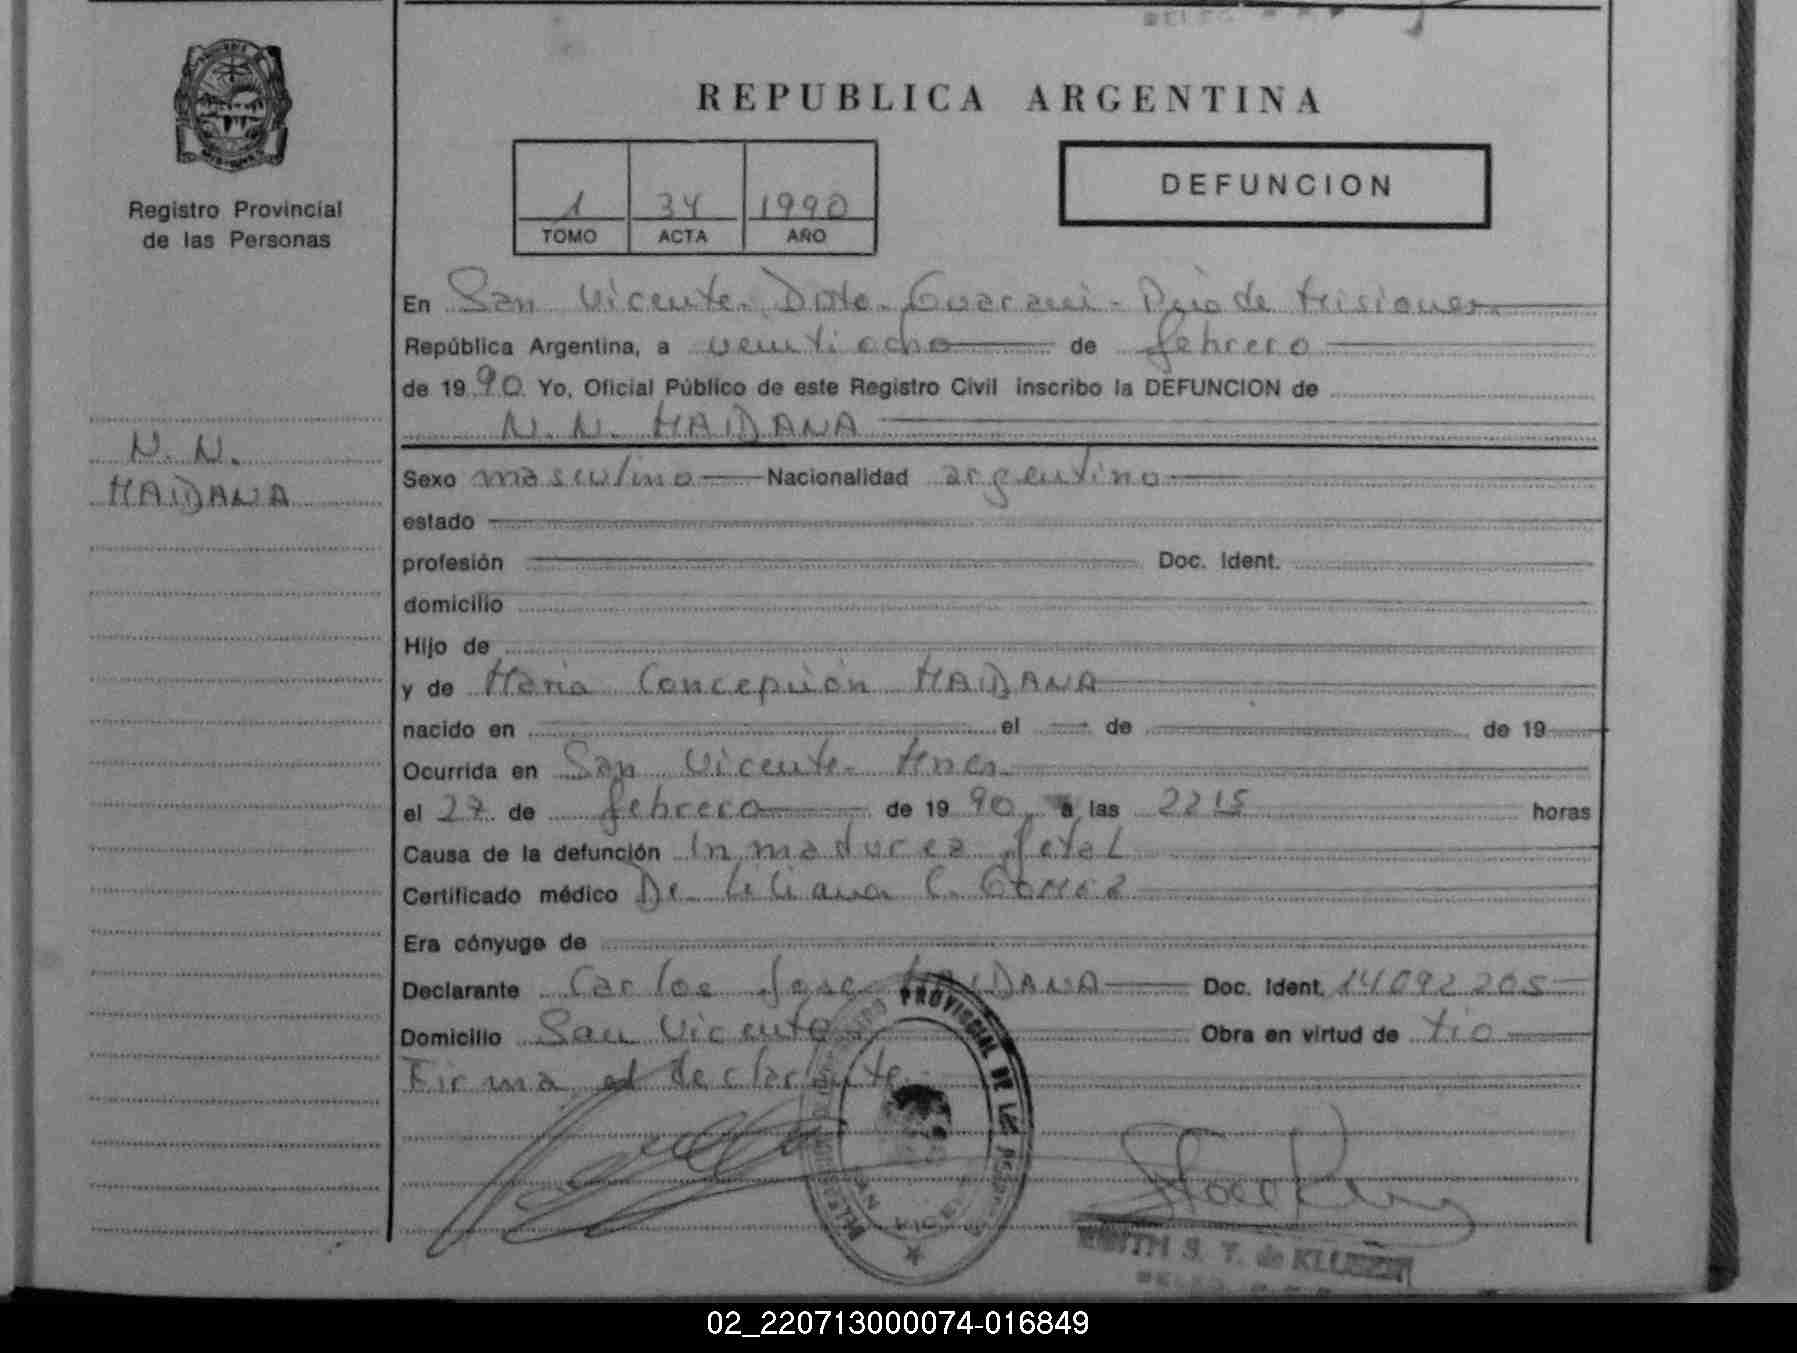 REPUBLICA ARGENTINA
Registro Provincial
de las Personas
1 34 1990
TOMO ACTA AÑO
DEFUNCION
En San Vicente - Dpto - Guarani - Pcia de Misiones
República Argentina, a veintiocho de febrero
de 19 90 Yo, Oficial Público de este Registro Civil inscribo la DEFUNCION de
N. N. MAIDANA
N. N.
MAIDANA
Sexo masculino Nacionalidad argentino
estado
profesión Doc. Ident.
domicilio
Hijo de
y de Maria Concepción MAIDANA
nacido en el de de 19
Ocurrida en San Vicente - Mnes
el 27 de febrero de 19 90 a las 2215 horas
Causa de la defunción Inmadurez fetal
Certificado médico De Liliana C. GOMEZ
Era cónyuge de
Declarante Carlos Jose MAIDANA Doc. Ident. 14092205
Domicilio San Vicente Obra en virtud de tio
Firma el declarante
PROVINCIAL DE LAS PERSONAS
SAN VICENTE
EDITH S. T. de
02_220713000074-016849